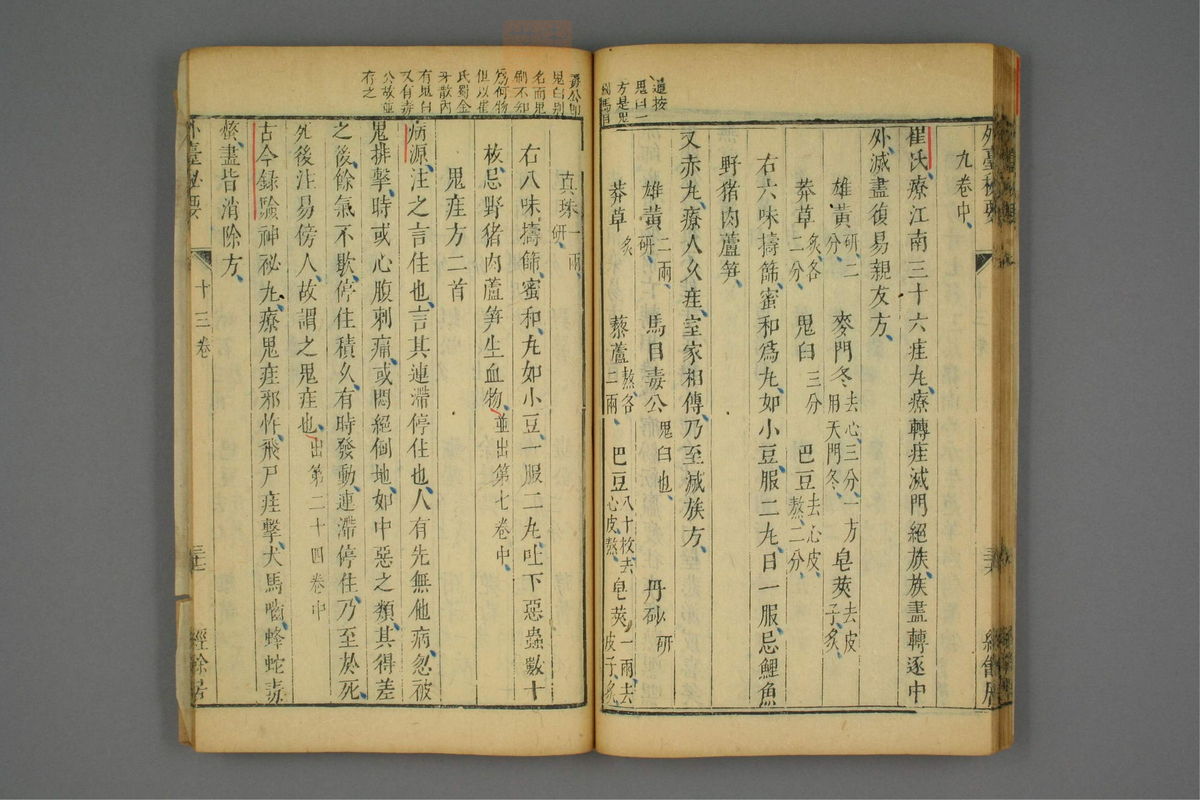 道按
鬼臼一
方是鬼
外臺秘要
九卷中
崔氏療江南三十六疰丸療轉疰滅門絕族族盡轉逐中
外滅盡復易親友方
雄黃研二分 麥門冬去心三分一方用天門冬 皂莢去皮子炙
莽草炙各二分 鬼臼三分 巴豆去心皮熬二分
右六味擣篩蜜和爲丸如小豆服二丸日一服忌鯉魚
野猪肉蘆笋
又赤丸療人久疰室家相傳乃至滅族方
雄黃二兩研 馬目毒公鬼臼也 丹砂研
莽草炙 藜蘆熬各二兩 巴豆八十枚去心皮熬 皂莢一兩去皮子炙
毒公卽
鬼臼別
名而鬼
臼不知
爲何物
但以崔
氏蜀金
牙散內
有鬼臼
又有毒
公故並
存之
真珠一兩研
右八味擣篩蜜和丸如小豆一服二丸吐下惡蟲數十
枚忌野猪肉蘆笋生血物並出第七卷中
鬼疰方二首
病源注之言住也言其連滯停住也人有先無他病忽被
鬼排擊時或心腹刺痛或悶絕倒地如中惡之類其得差
之後餘氣不歇停住積久有時發動連滯停住乃至於死
死後注易傍人故謂之鬼疰也出第二十四卷中
古今錄驗神祕丸療鬼疰邪忤飛尸疰擊犬馬嚙蜂蛇毒
螫盡皆消除方
外臺秘要
十三卷
經餘居